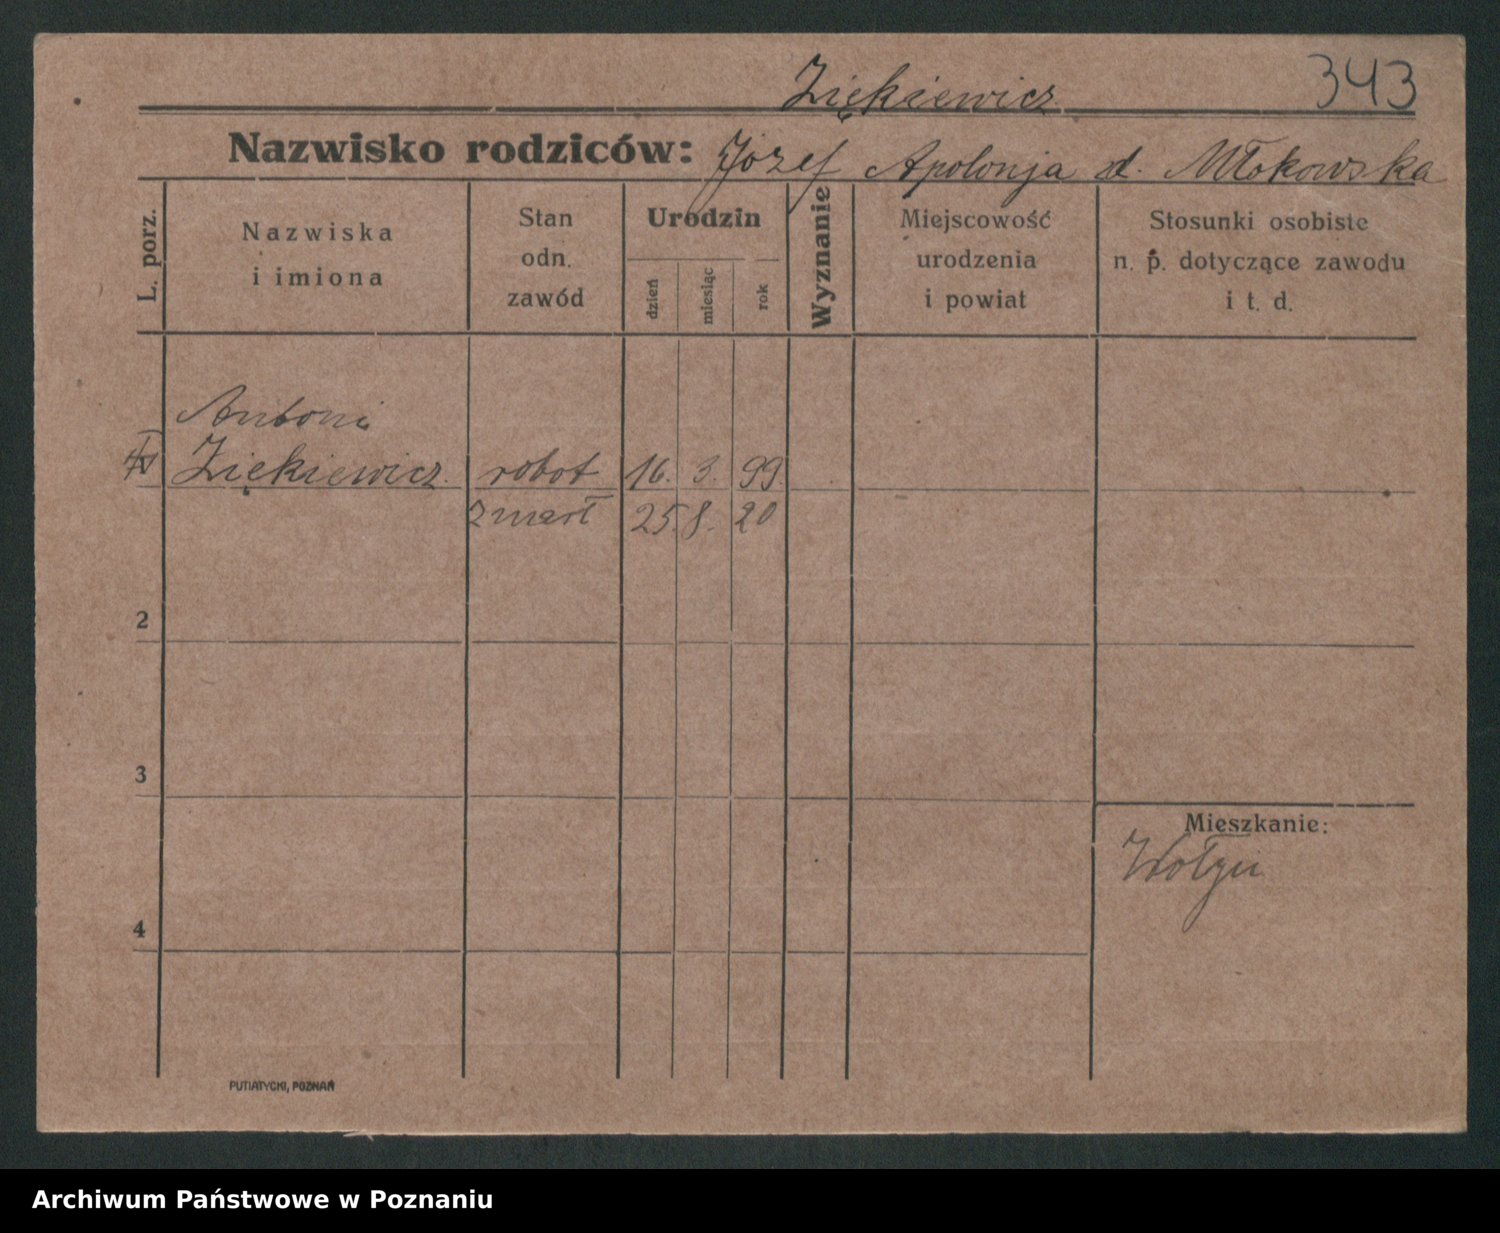 Ziękiewicz 343
Nazwisko rodziców: Józef Apolonja d. Młokowska
L. porz.
Nazwiska
i imiona
Stan
odn.
zawód
Urodzin
dzień
miesiąc
rok
Wyznanie
Miejscowość
urodzenia
i powiat
Stosunki osobiste
n. p. dotyczące zawodu
i t. d.
Antoni
Ziękiewicz robot 16. 3. 99.
zmarł 25. 8. 20
2
3
Mieszkanie:
4
PUTIATYCKI, POZNAŃ
Archiwum Państwowe w Poznaniu